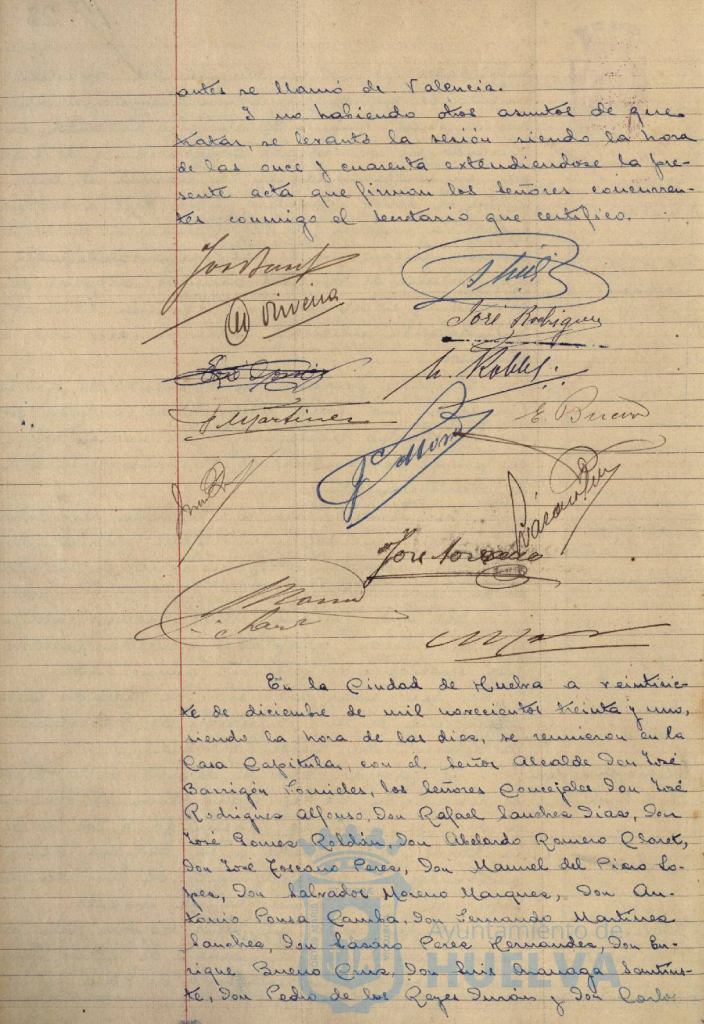 antes se llamó de Valencia.
Y no habiendo otros asuntos de que
tratar, se levantó la sesión siendo la hora
de las once y cuarenta extendiendose la pre-
sente acta que firman los señores concurren-
tes conmigo el secretario que certifico.
Oliveira
José Rodriguez
M. Robles
F Martinez
E. Bueno
Lázaro Perez
Jose Toscano
En la Ciudad de Huelva a veintisie-
te de diciembre de mil novecientos treinta y uno,
siendo la hora de las diez, se reunieron en la
Casa Capitular, con el Señor Alcalde Don José
Barrigón Fornieles, los Señores Concejales Don José
Rodriguez Alfonso, Don Rafael Sanchez Diaz, Don
José Gomez Roldán, Don Abelardo Romero Claret,
Don José Toscano Perez, Don Manuel del Pino Lo-
pez, Don Salvador Moreno Marquez, Don An-
tonio Ponsa Camba, Don Fernando Martinez
Sanchez, Don Lázaro Perez Hernandez, Don En-
rique Bueno Cruz, Don Luis
te, Don Pedro de los Reyes Durán y Don Carlos
Ayuntamiento de
HUELVA